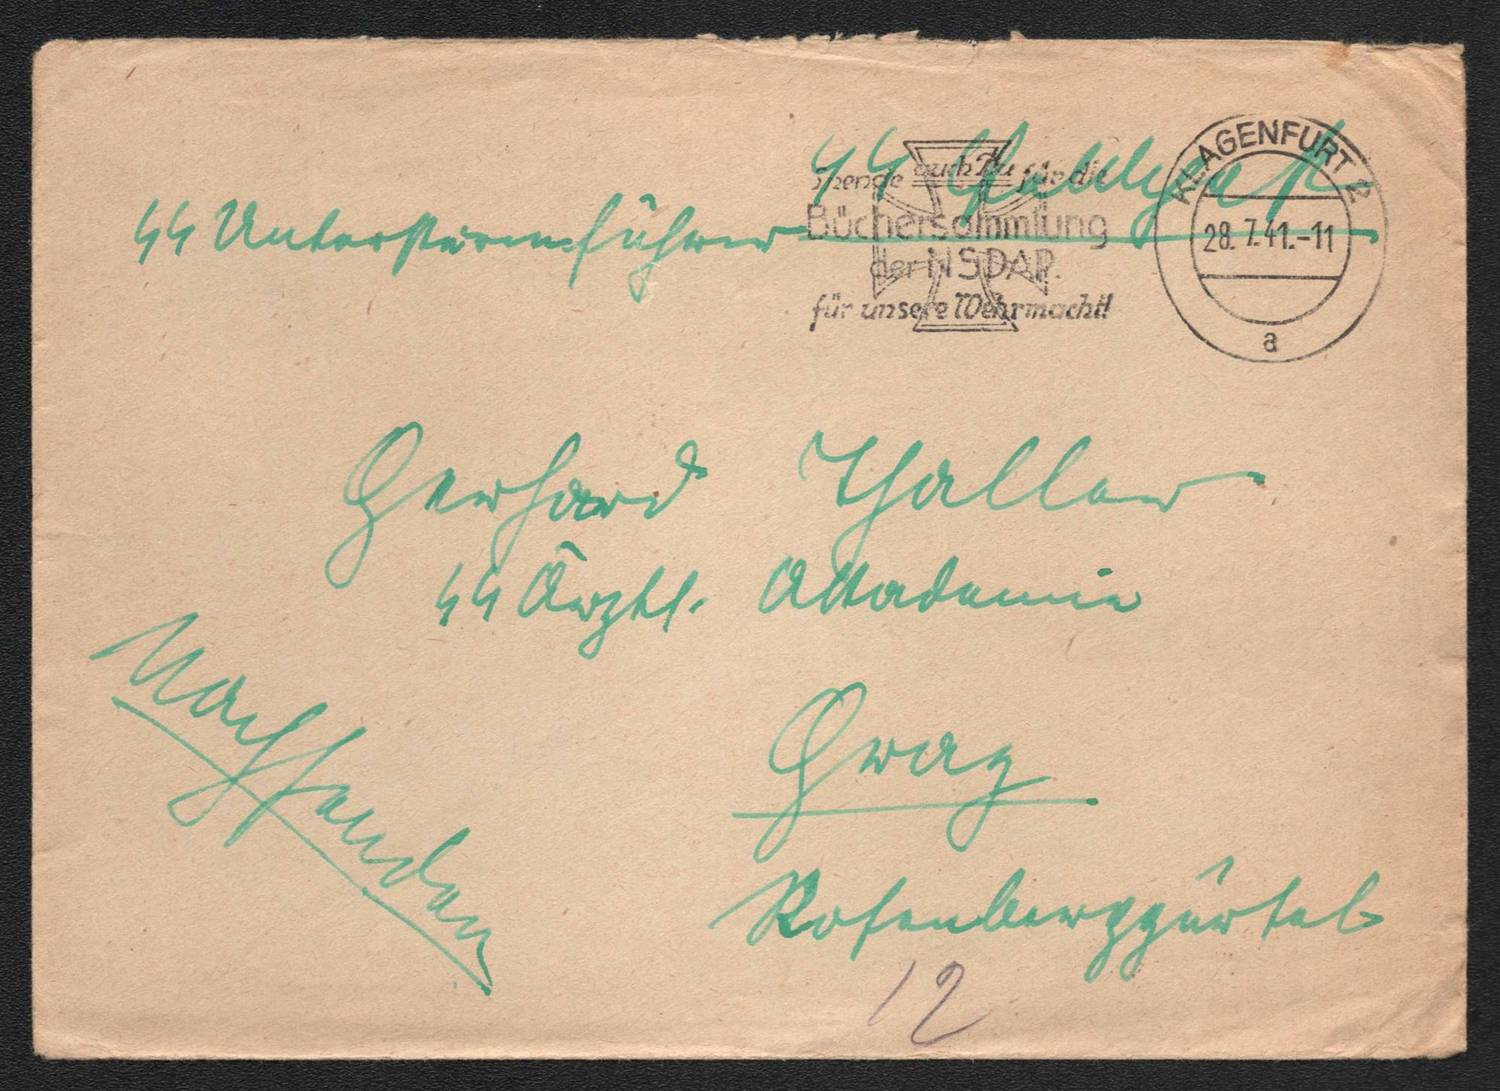 SS Feldpost
SS Untersturmführer
Spende auch Du für die
Büchersammlung
der NSDAP.
für unsere Wehrmacht!
KLAGENFURT 2
28.7.41.-11
a
Gerhard Thaller
SS Ärztl. Akademie
Nachsenden
Graz
Rosenberggürtel
12